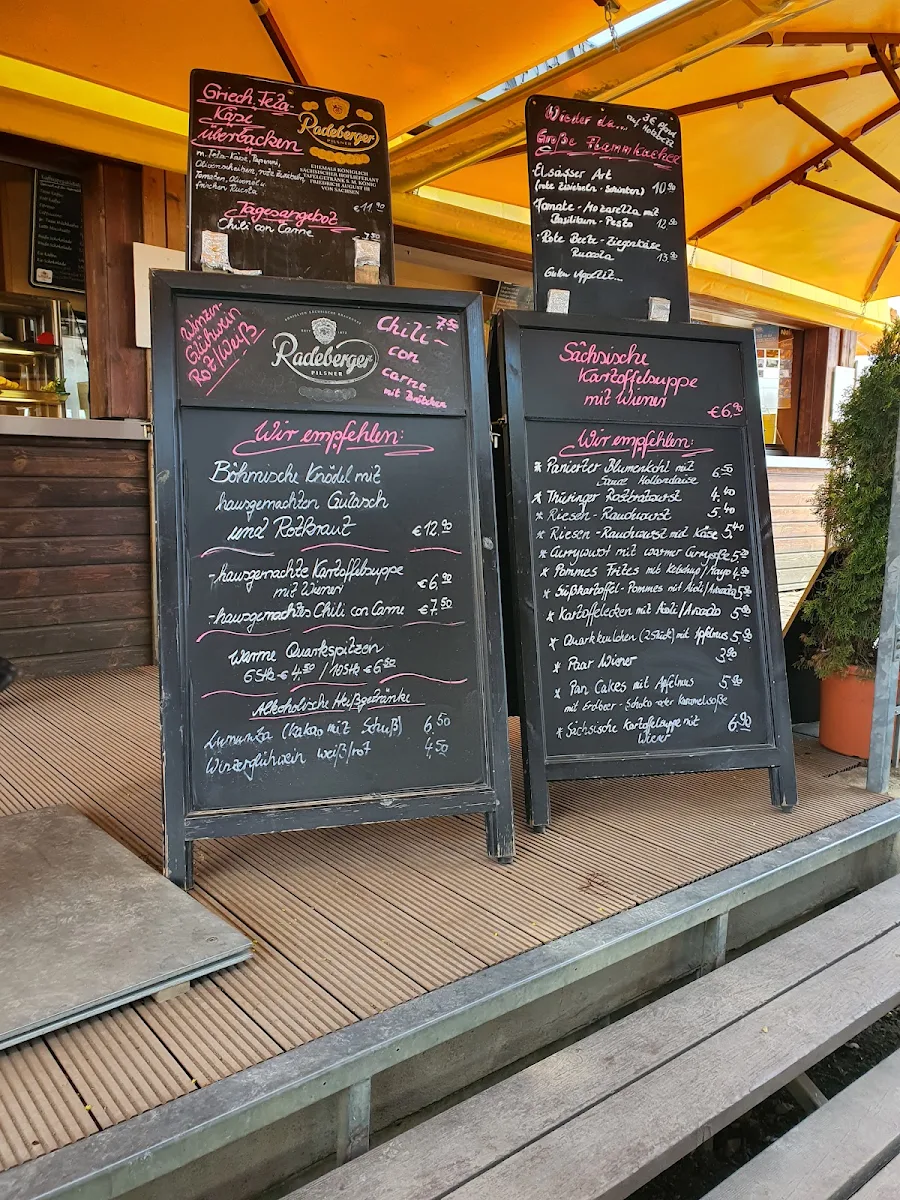 Griech. Feta
Käse
überbacken
Radeberger
PILSNER
EHEMALS KÖNIGLICH
SÄCHSISCHER HOFLIEFERANT
TAFELGETRÄNK S. M. KÖNIG
FRIEDRICH AUGUST III
VON SACHSEN
m. Feta-Käse, Peperoni,
Olivenscheiben, rote Zwiebeln,
Tomaten, Olivenöl u.
frischen Rucola
€ 11.90
Tagesangebot
Chili con Carne
7.50
Wieder da...
auf Holzbrett
Große Flammkuchen
Elsässer Art
(rote Zwiebeln - Schinken) 10.90
Tomate - Mozarella mit
Basilikum - Pesto 12.90
Rote Beete - Ziegenkäse
Rucola 13.90
Guten Appetit...
Winzer-
Glühwein
Rot/Weiß
Radeberger
PILSNER
Chili- 7.50
con
carne
mit Brötchen
Wir empfehlen:
Böhmische Knödel mit
hausgemachten Gulasch
und Rotkraut € 12.90
-hausgemachte Kartoffelsuppe
mit Wiener € 6.90
-hausgemachtes Chili con Carne € 7.50
Warme Quarkspitzen
6Stk € 4.50 / 10Stk € 6.50
Alkoholische Heißgetränke
Lumumba (Kakao mit Schuß) 6.50
Winzerglühwein weiß/rot 4.50
Sächsische
Kartoffelsuppe
mit Wiener
€ 6.90
Wir empfehlen:
* Panierter Blumenkohl mit
Sauce Hollondaise 6.50
* Thüringer Rostbratwurst 4.40
* Riesen - Rauchwurst 5.40
* Riesen - Rauchwurst mit Käse 5.40
* Currywurst mit warmer Currysoße
* Pommes Frites mit Ketchup/Mayo
* Süßkartoffel-Pommes mit Aioli/
* Kartoffelecken mit Aioli/
* Quarkkeulchen (2 Stück) mit Apfelmus 5.90
* Paar Wiener 3.90
* Pan Cakes mit Apfelmus 5.90
mit Erdbeer-Schoko oder Karamelsoße
* Sächsische Kartoffelsuppe mit
Wiener 6.90